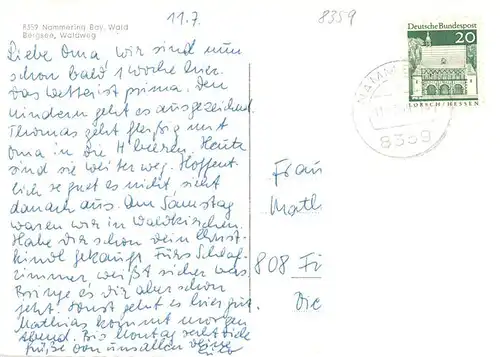 8359 Nammering Bay. Wald
Bergsee, Waldweg
11.7.
8359
Deutsche Bundespost
20
LORSCH/HESSEN
NAMM
8359
Liebe Oma, wir sind nun
schon bald 1 Woche hier.
Das Wetter ist prima. Den
Kindern geht es ausgezeichnet.
Thomas geht fleißig mit
Oma in die H beeren. Heute
sind sie weiter weg. Hoffent-
lich regnet es nicht, sieht
danach aus. Am Samstag
waren wir in Waldkirchen.
Habe dir schon dein Christ-
kindl gekauft. Fürs Schlaf-
zimmer, weißt sicher was.
Bringe es dir aber schon
jetzt. Sonst geht es hier gut.
Mathias kommt morgen
Abend. Bis Montag
Grüße von uns allen deine
Frau
Math
808 Fü
Die